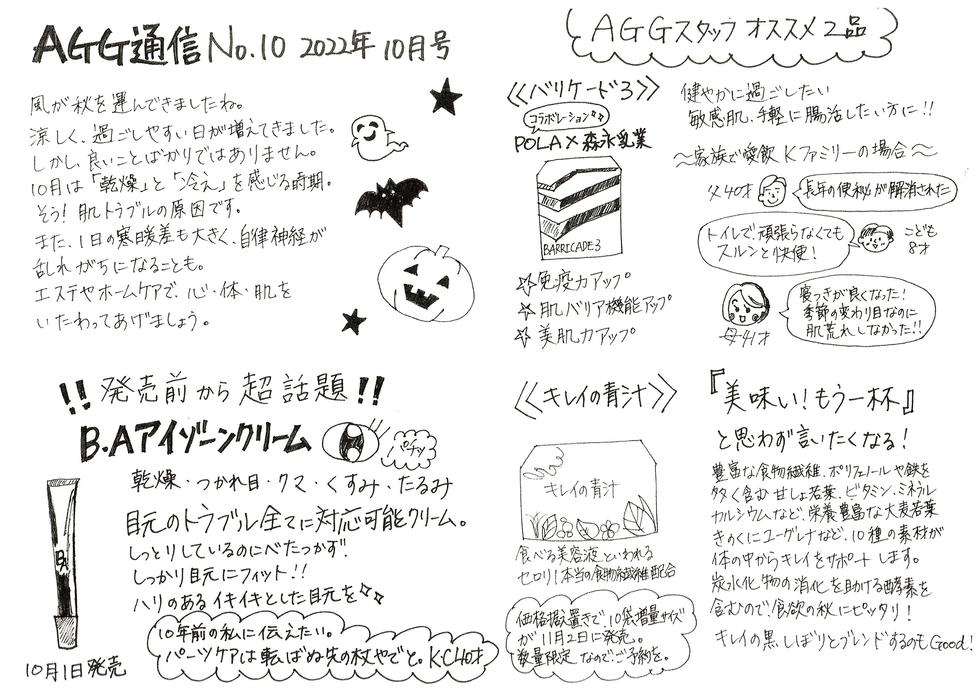 AGG通信 No.10 2022年 10月号
風が秋を運んできましたね。
涼しく、過ごしやすい日が増えてきました。
しかし、良いことばかりではありません。
10月は「乾燥」と「冷え」を感じる時期。
そう!肌トラブルの原因です。
また、1日の寒暖差も大きく、自律神経が
乱れがちになることも。
エステやホームケアで、心・体・肌を
いたわってあげましょう。
!!発売前から超話題!!
B.Aアイゾーンクリーム
パチッ
乾燥・つかれ目・クマ・くすみ・たるみ
目元のトラブル全てに対応可能クリーム。
しっとりしているのにべたつかず!
しっかり目元にフィット!!
ハリのあるイキイキとした目元を
BA
10月1日発売
10年前の私に伝えたい。
パーツケアは転ばぬ先の杖やでと。K.C40才
AGGスタッフオススメ2品
《バリケード3》
コラボレーション
POLA×森永乳業
BARRICADE3
☆免疫力アップ
☆肌バリア機能アップ
☆美肌力アップ
健やかに過ごしたい
敏感肌、手軽に腸活したい方に!!
〜家族で愛飲Kファミリーの場合〜
父40才
長年の便秘が解消された
トイレで頑張らなくても
スルンと快便!
こども
8才
母41才
寝つきが良くなった!
季節の変わり目なのに
肌荒れしなかった!!
《キレイの青汁》
キレイの青汁
食べる美容液といわれる
セロリ1本当の食物繊維配合
価格据置きで、10袋増量サイズ
が11月2日に発売。
数量限定なのでご予約を。
『美味い!もう一杯』
と思わず言いたくなる!
豊富な食物繊維、ポリフェノールや鉄を
多く含む甘しょ若葉、ビタミン、ミネラル
カルシウムなど、栄養豊富な大麦若葉
きのくにユーグレナなど、10種の素材が
体の中からキレイをサポートします。
炭水化物の消化を助ける酵素を
含むので、食欲の秋にピッタリ!
キレイの黒しぼりとブレンドするのもGood!